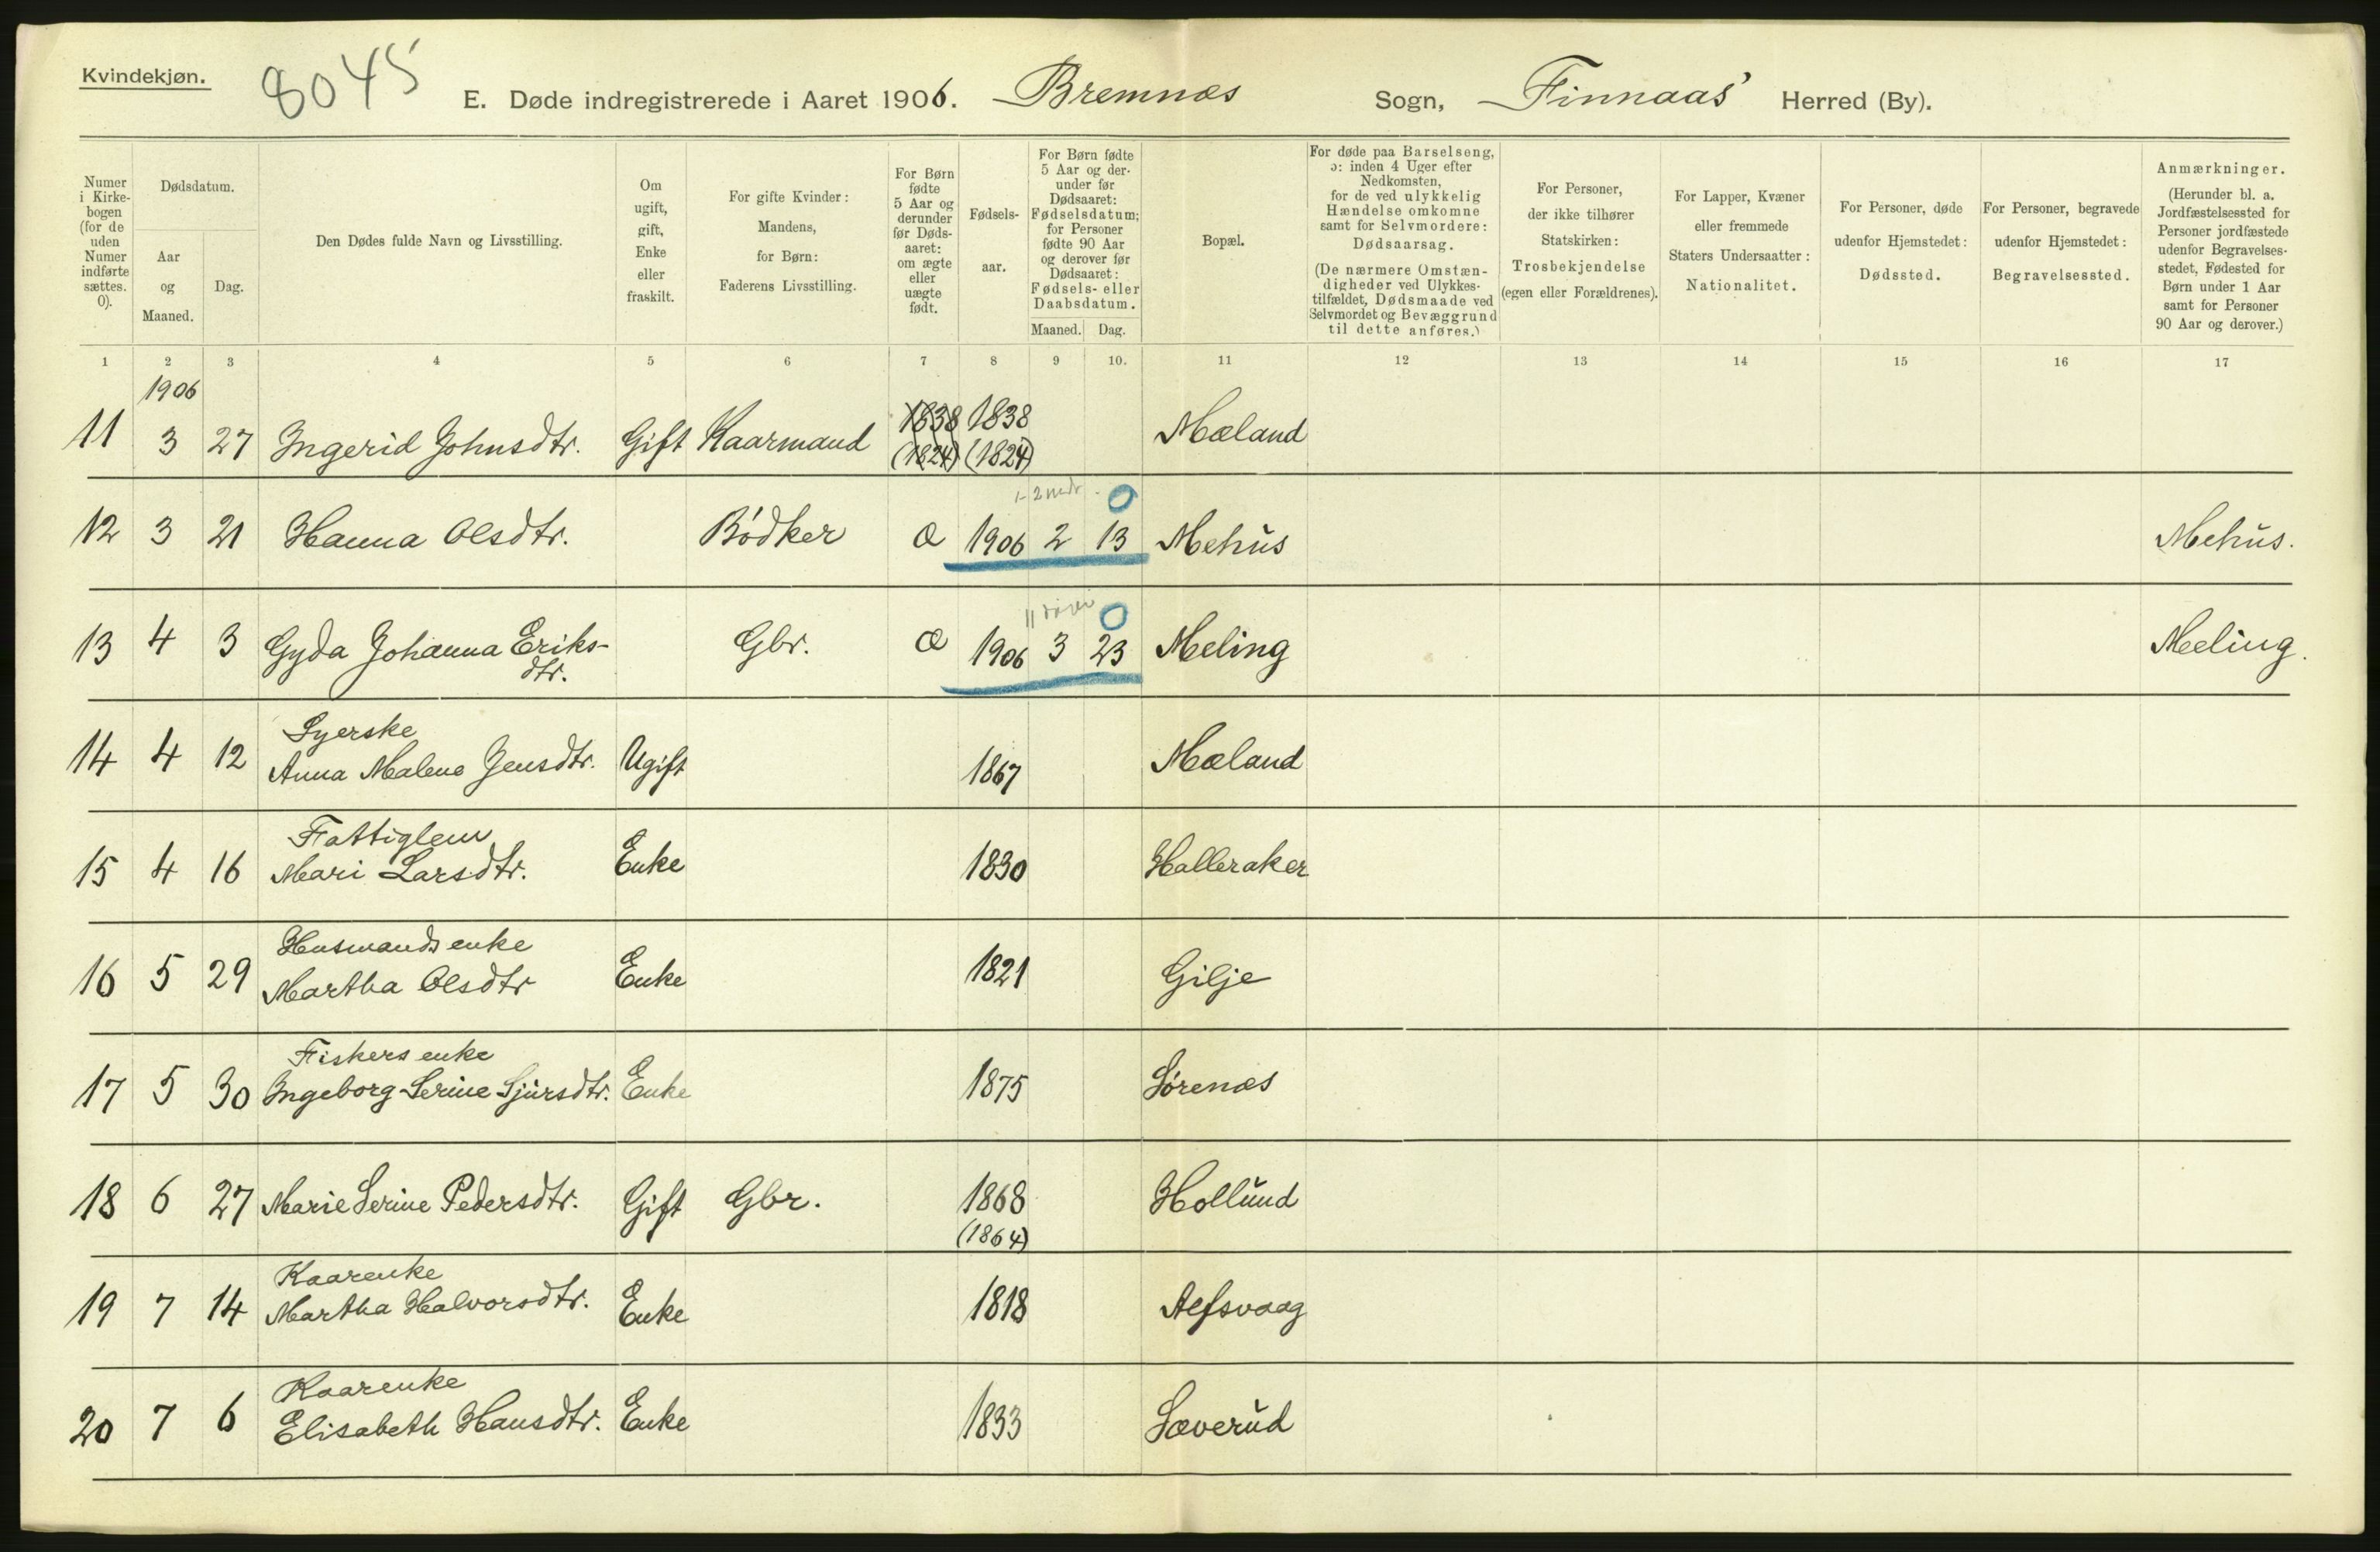 Kvindekjøn.
8045
E. Døde indregistrerede i Aaret 1906. Bremnæs Sogn, Finnaas Herred (By).
Numer i Kirkebogen (for de uden Numer indførte sættes. 0).
Dødsdatum.
Aar og Maaned.
Dag.
Den Dødes fulde Navn og Livsstilling.
Om ugift, gift, Enke eller fraskilt.
For gifte Kvinder: Mandens, for Børn: Faderens Livsstilling.
For Børn fødte 5 Aar og derunder før Dødsaaret: om ægte eller uægte født.
Fødselsaar.
For Børn fødte 5 Aar og derunder før Dødsaaret: Fødselsdatum; for Personer fødte 90 Aar og derover før Dødsaaret: Fødsels- eller Daabsdatum.
Maaned. Dag.
Bopæl.
For døde paa Barselseng, ɔ: inden 4 Uger efter Nedkomsten, for de ved ulykkelig Hændelse omkomne samt for Selvmordere: Dødsaarsag.
(De nærmere Omstændigheder ved Ulykkestilfældet, Dødsmaade ved Selvmordet og Bevæggrund til dette anføres.)
For Personer, der ikke tilhører Statskirken: Trosbekjendelse (egen eller Forældrenes).
For Lapper, Kvæner eller fremmede Staters Undersaatter: Nationalitet.
For Personer, døde udenfor Hjemstedet: Dødssted.
For Personer, begravede udenfor Hjemstedet: Begravelsessted.
Anmærkninger.
(Herunder bl. a. Jordfæstelsessted for Personer jordfæstede udenfor Begravelsesstedet, Fødested for Børn under 1 Aar samt for Personer 90 Aar og derover.)
1 2 3 4 5 6 7 8 9 10. 11 12 13 14 15 16 17
1906
11 3 27 Ingerid Johnsdtr. Gift Kaarmand 1838 1838 Mæland
(1824) (1824)
1-2 mdr. 0
12 3 21 Hanna Olsdtr. Bødker Æ 1906 2 13 Mehus Mehus.
11 0
13 4 3 Gyda Johanna Eriks- Gbr. Æ 1906 3 23 Meling Meling.
dtr.
Syerske
14 4 12 Anna Malene Jensdtr. Ugift 1867 Mæland
Fattiglem
15 4 16 Mari Larsdtr. Enke 1830 Halleraker
Husmandsenke
16 5 29 Martha Olsdtr Enke 1821 Gilje
Fiskers enke
17 5 30 Ingeborg Serine Sjursdtr. Enke 1875 Sørenæs
18 6 27 Marie Serine Pedersdtr. Gift Gbr. 1868 Hollund
(1864)
Kaarenke
19 7 14 Martha Halvorsdtr. Enke 1818 Alfsvaag
Kaarenke
20 7 6 Elisabeth Hansdtr. Enke 1833 Sæverud